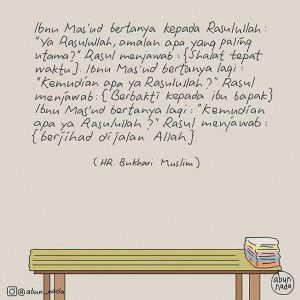 Ibnu Mas'ud bertanya kepada Rasulullah :
"Ya Rasulullah, amalan apa yang paling
utama?" Rasul menjawab : {Shalat tepat
waktu}. Ibnu Mas'ud bertanya lagi :
"Kemudian apa ya Rasulullah?" Rasul
menjawab : {Berbakti kepada ibu bapak}
Ibnu Mas'ud bertanya lagi : "Kemudian
apa ya Rasulullah?" Rasul menjawab :
{berjihad di jalan Allah}.
(HR. Bukhari Muslim)
@abun_nada
abun
nada